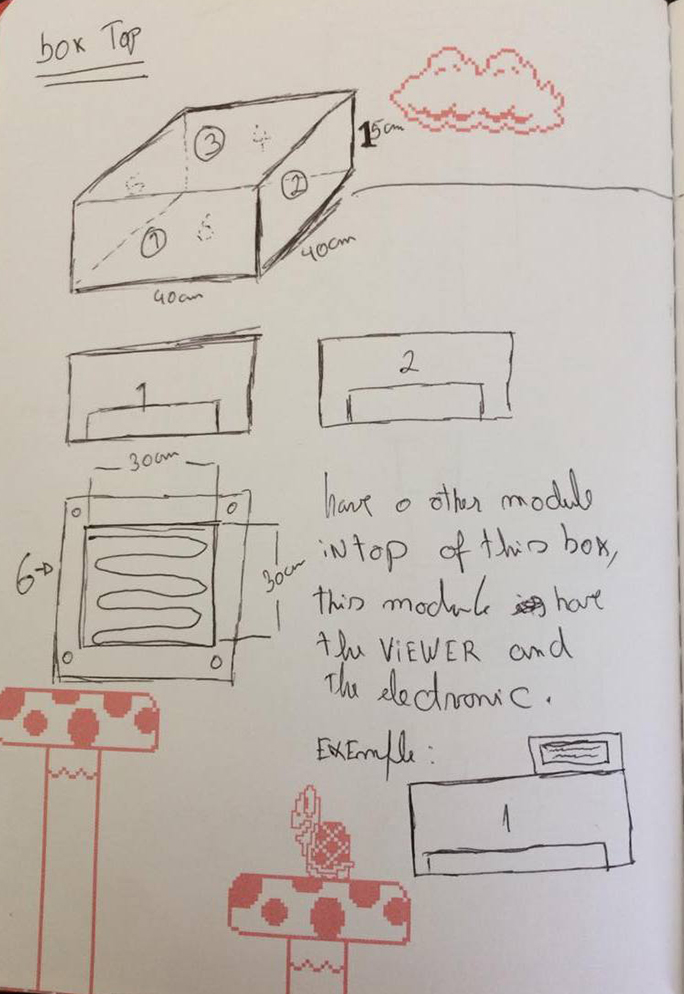 box Top
3
4
15cm
5
2
1
6
40cm
40cm
1
2
30cm
6→
30cm
have o other module
iN top of this box,
this module have
the ViEWER and
The electronic.
EXEmple:
1